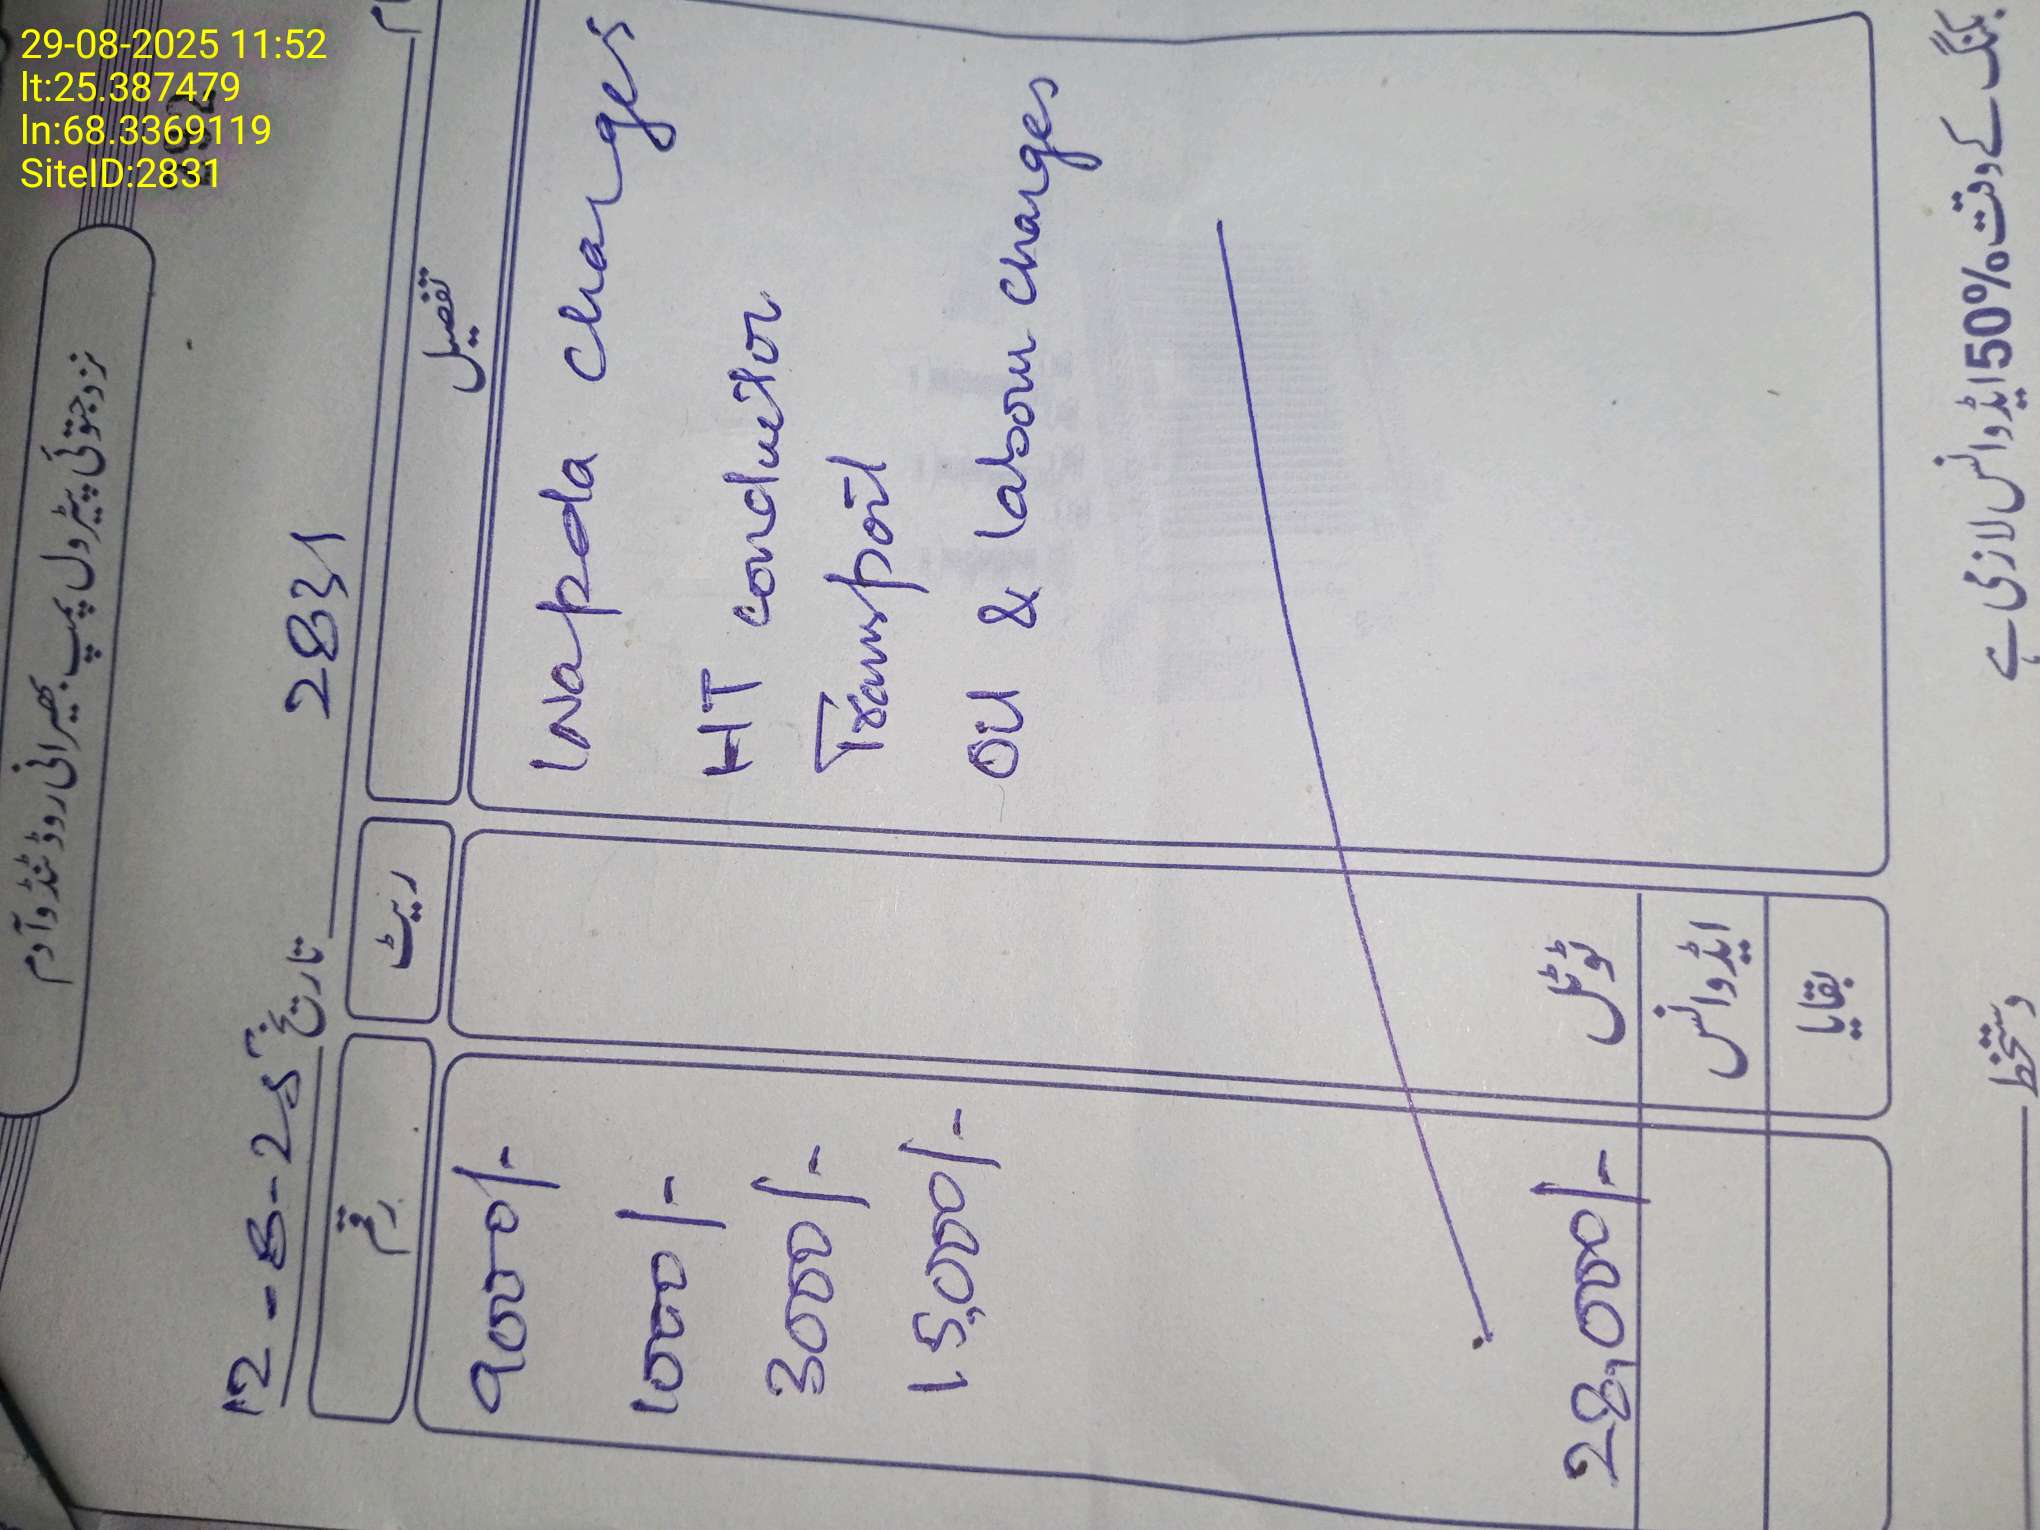 29-08-2025 11:52
lt:25.387479
ln:68.3369119
SiteID:2831
نزد جتوئی پیٹرول پمپ بھیرانی روڈ ٹنڈوآدم
2831
تاریخ 12-8-25
تفصیل ریٹ رقم
Wapda charges 9000/-
HT conductor 1000/-
Transport 3000/-
Oil & labour charges 15,000/-
ٹوٹل 28,000/-
ایڈوانس
بقایا
بکنگ کے وقت %50 ایڈوانس لازمی ہے
دستخط